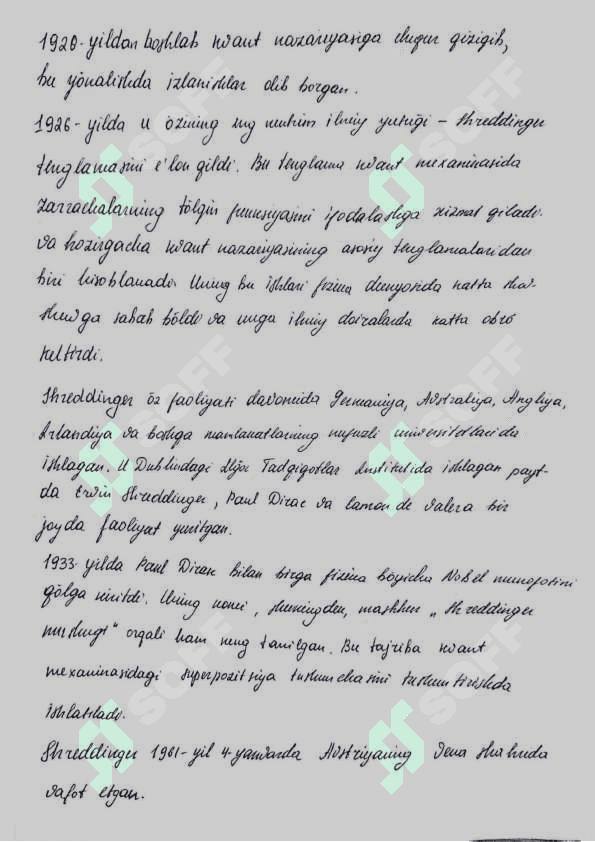 1920-yildan boshlab kvant nazariyasiga chuqur qiziqib,
bu yo'nalishda izlanishlar olib borgan.
1926-yilda u o'zining eng muhim ilmiy yutug'i – Shreddinger
tenglamasini e'lon qildi. Bu tenglama kvant mexanikasida
zarrachalarning to'lqin funksiyasini ifodalashga xizmat qiladi.
va hozirgacha kvant nazariyasining asosiy tenglamalaridan
biri hisoblanadi. Uning bu ishlari fizika dunyosida katta shov-
shuvga sabab bo'ldi va unga ilmiy doiralarda katta obro'
keltirdi.
Shreddinger o'z faoliyati davomida Germaniya, Avstraliya, Angliya,
Irlandiya va boshqa mamlakatlarning nufuzli universitetlarida
ishlagan. U Dublindagi Ilg'or Tadqiqotlar Institutida ishlagan payt-
da Ervin Shreddinger, Paul Dirac va Eamon de Valera bir
joyda faoliyat yuritgan.
1933-yilda Paul Dirac bilan birga fizika bo'yicha Nobel mukofotini
qo'lga kiritdi. Uning nomi, shuningdek, mashhur „Shreddinger
mushugi" orqali ham keng tanilgan. Bu tajriba kvant
mexanikasidagi superpozitsiya tushunchasini tushuntirishda
ishlatiladi.
Shreddinger 1961-yil 4-yanvarda Avstriyaning Vena shahrida
vafot etgan.
SOFF
SOFF
SOFF
SOFF
SOFF
SOFF